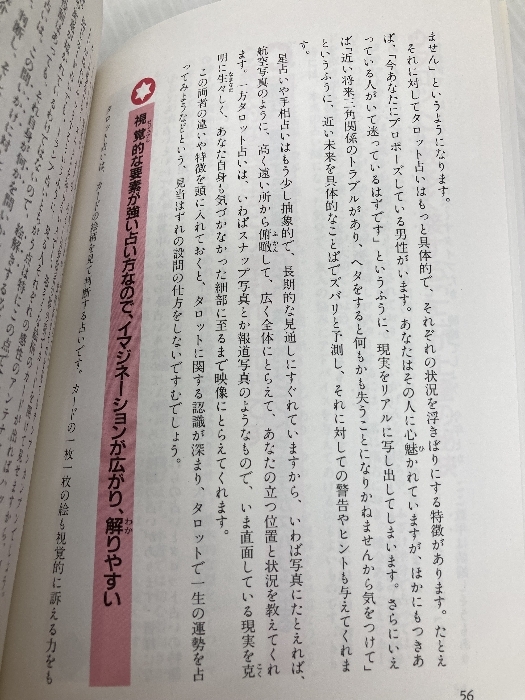 ません」というようになります。
それに対してタロット占いはもっと具体的で、それぞれの状況を浮きぼりにする特徴があります。たとえ
ば、「今あなたにプロポーズしている男性がいます。あなたはその人に心魅かれていますが、ほかにもつきあ
っている人がいて迷っているはずです」というふうに、現実をリアルに写し出してしまいます。さらにいえ
ば「近い将来三角関係のトラブルがあり、ヘタをすると何もかも失うことになりかねませんから気をつけて」
というふうに、近い未来を具体的なことばでズバリと予測し、それに対しての警告やヒントも与えてくれま
す。
星占いや手相占いはもう少し抽象的で、長期的な見通しにすぐれていますから、いわば写真にたとえれば、
航空写真のように、高く遠い所から俯瞰して、広く全体にとらえて、あなたの立つ位置と状況を教えてくれ
ます。一方タロット占いは、いわばスナップ写真とか報道写真のようなもので、いま直面している現実を克
明に生々しく、あなた自身も気づかなかった細部に至るまで映像にとらえてくれます。
この両者の違いや特徴を頭に入れておくと、タロットに関する認識が深まり、タロットで一生の運勢を占
ってみようなどという、見当はずれの設問の仕方をしないですむでしょう。
視覚的な要素が強い占い方なので、イマジネーションが広がり、解りやすい
タロット占いは、カードの絵柄を見て判断する占いです。カードの一枚一枚の絵も視覚的に訴える力をも
56